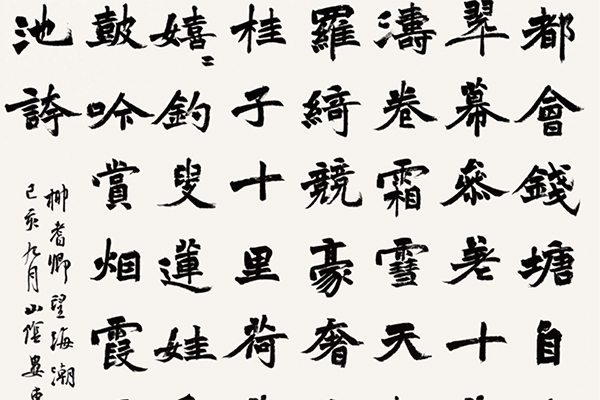 都會錢塘自
翠幕參差十
濤卷霜雪天
羅綺競豪奢
桂子十里荷
嬉〻釣叟蓮娃
皷吟賞烟霞
池誇
柳耆卿望海潮
己亥九月山陰婁